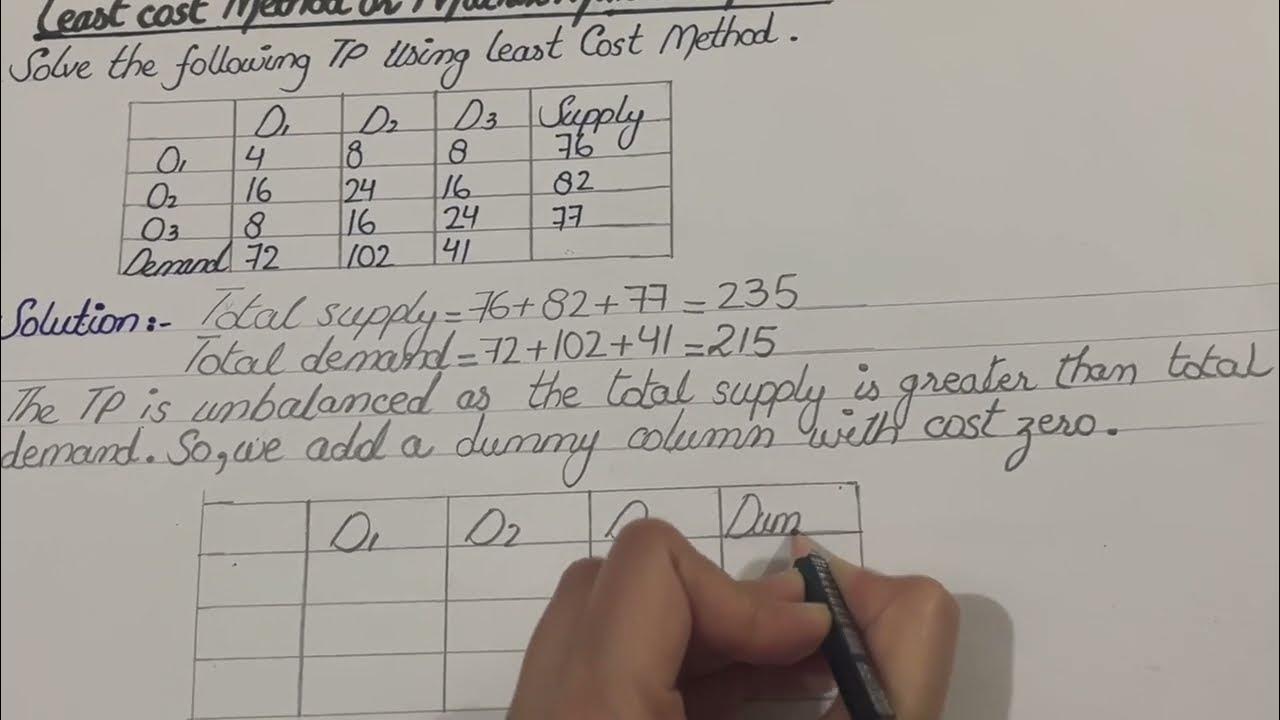 Least cost Method or
Solve the following TP Using Least Cost Method.
D1 D2 D3 Supply
O1 4 8 8 76
O2 16 24 16 82
O3 8 16 24 77
Demand 72 102 41
Solution:- Total supply = 76+82+77 = 235
Total demand = 72+102+41 = 215
The TP is unbalanced as the total supply is greater than total
demand. So, we add a dummy column with cost zero.
D1 D2 Dum